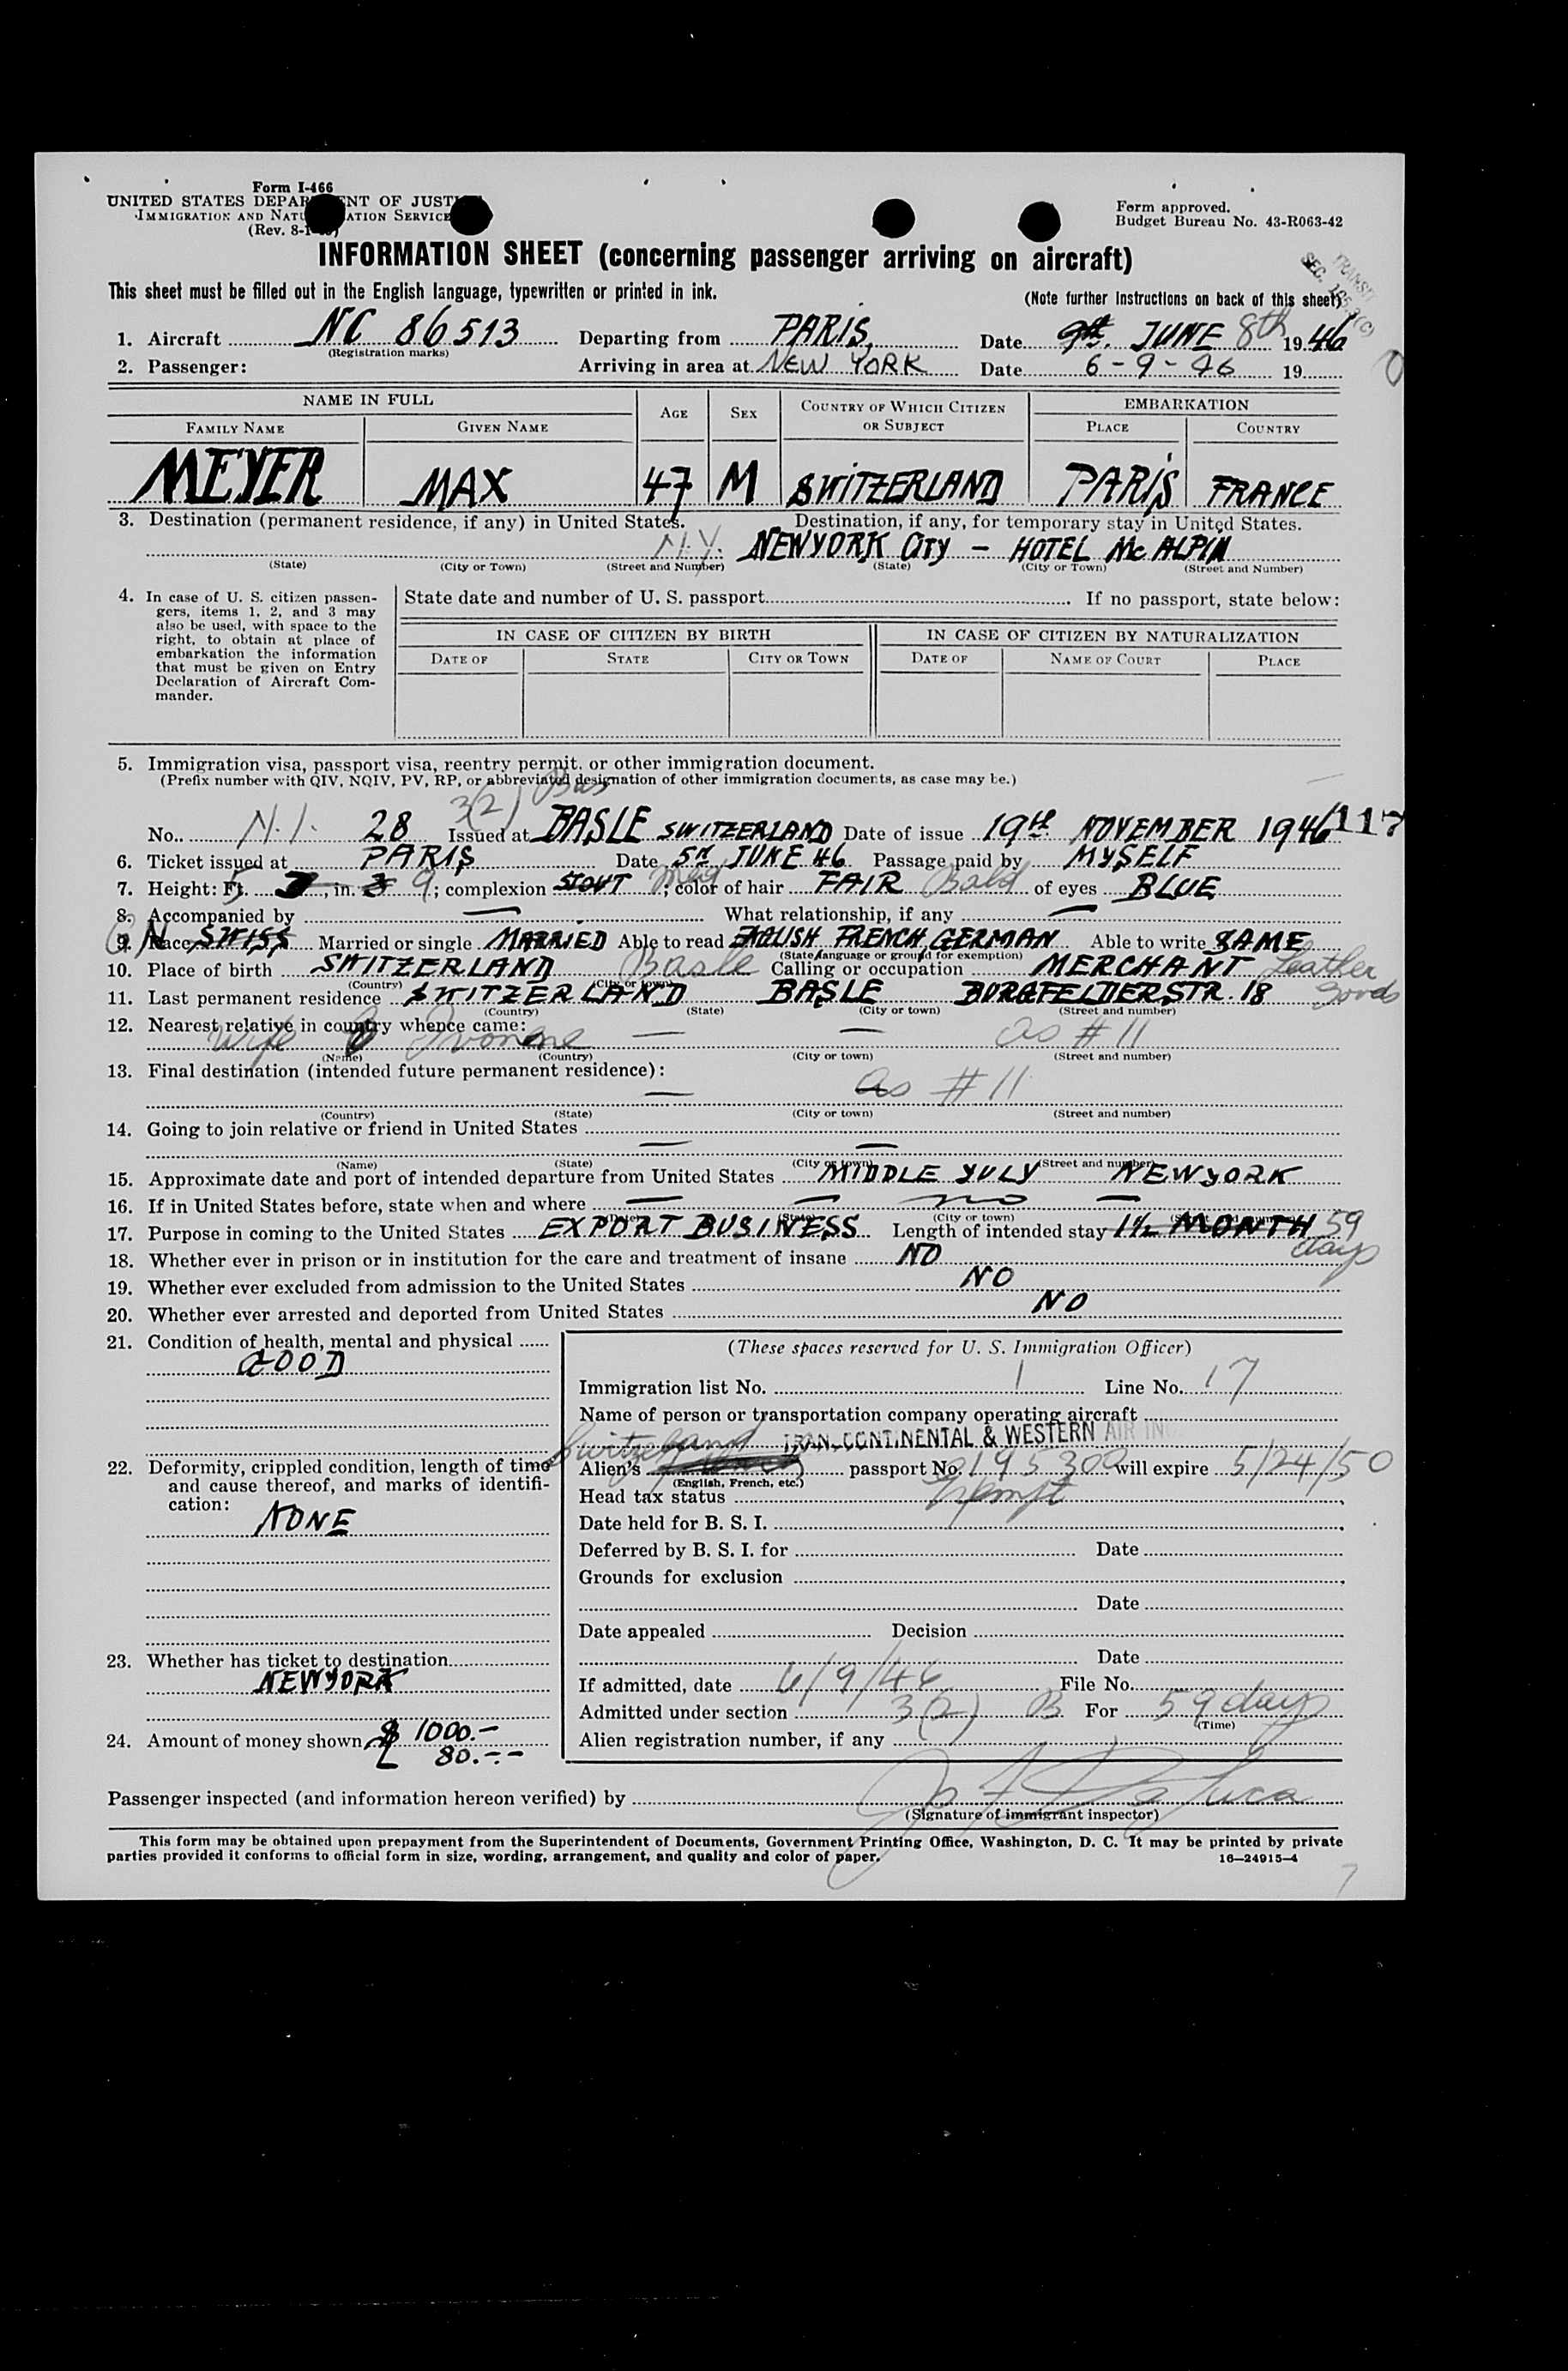 Form I-466
UNITED STATES DEPAR NT OF JUST
IMMIGRATION AND NATU ATION SERVICE
(Rev. 8-1
Form approved.
Budget Bureau No. 43-R063-42
INFORMATION SHEET (concerning passenger arriving on aircraft)
TRANSIT
SEC.
This sheet must be filled out in the English language, typewritten or printed in ink.
(Note further instructions on back of this sheet)
1. Aircraft NC 86513 Departing from PARIS, Date 9th. JUNE 8th 1946
(Registration marks)
2. Passenger: Arriving in area at NEW YORK Date 6-9-46 19
NAME IN FULL AGE SEX COUNTRY OF WHICH CITIZEN OR SUBJECT EMBARKATION
FAMILY NAME GIVEN NAME PLACE COUNTRY
MEYER MAX 47 M SWITZERLAND PARIS FRANCE
3. Destination (permanent residence, if any) in United States. Destination, if any, for temporary stay in United States.
N.Y. NEWYORK CITY - HOTEL Mc ALPIN
(State) (City or Town) (Street and Number) (State) (City or Town) (Street and Number)
4. In case of U. S. citizen passengers, items 1, 2, and 3 may also be used, with space to the right, to obtain at place of embarkation the information that must be given on Entry Declaration of Aircraft Commander.
State date and number of U. S. passport If no passport, state below:
IN CASE OF CITIZEN BY BIRTH IN CASE OF CITIZEN BY NATURALIZATION
DATE OF STATE CITY OR TOWN DATE OF NAME OF COURT PLACE
5. Immigration visa, passport visa, reentry permit, or other immigration document.
(Prefix number with QIV, NQIV, PV, RP, or abbreviated designation of other immigration documents, as case may be.)
3(2) Bus
No. N.I. 28 Issued at BASLE SWITZERLAND Date of issue 19th NOVEMBER 1946 117
6. Ticket issued at PARIS Date 5th JUNE 46 Passage paid by MYSELF
7. Height: Ft. 5, in. 9; complexion STOUT med; color of hair FAIR Bald of eyes BLUE
8. Accompanied by — What relationship, if any —
9. Race SWISS Married or single MARRIED Able to read ENGLISH FRENCH GERMAN Able to write SAME
(State language or ground for exemption)
10. Place of birth SWITZERLAND Basle Calling or occupation MERCHANT Leather Goods
(Country) (City or town)
11. Last permanent residence SWITZERLAND BASLE BURGFELDERSTR. 18
(Country) (State) (City or town) (Street and number)
12. Nearest relative in country whence came:
Wife Ivonne — — as #11
(Name) (Country) (City or town) (Street and number)
13. Final destination (intended future permanent residence):
— as #11
(Country) (State) (City or town) (Street and number)
14. Going to join relative or friend in United States
— —
(Name) (State) (City or town) (Street and number)
15. Approximate date and port of intended departure from United States MIDDLE YULY NEWYORK
16. If in United States before, state when and where — — no —
(State) (City or town)
17. Purpose in coming to the United States EXPORT BUSINESS Length of intended stay 1½ MONTH 59 days
18. Whether ever in prison or in institution for the care and treatment of insane NO
19. Whether ever excluded from admission to the United States NO
20. Whether ever arrested and deported from United States NO
21. Condition of health, mental and physical
GOOD
22. Deformity, crippled condition, length of time and cause thereof, and marks of identification:
NONE
23. Whether has ticket to destination
NEWYORK
24. Amount of money shown $ 1000.—
£ 80.-.-
(These spaces reserved for U. S. Immigration Officer)
Immigration list No. 1 Line No. 17
Name of person or transportation company operating aircraft
TRANSCONTINENTAL & WESTERN AIR INC
Switzerland
Alien's passport No. 0195300 will expire 5/24/50
(English, French, etc.)
Head tax status Exempt
Date held for B. S. I.
Deferred by B. S. I. for Date
Grounds for exclusion
Date
Date appealed Decision
Date
If admitted, date 6/9/46 File No.
Admitted under section 3(2) B For 59 days
(Time)
Alien registration number, if any
Passenger inspected (and information hereon verified) by
(Signature of immigrant inspector)
This form may be obtained upon prepayment from the Superintendent of Documents, Government Printing Office, Washington, D. C. It may be printed by private
parties provided it conforms to official form in size, wording, arrangement, and quality and color of paper.
16—24915-4
7